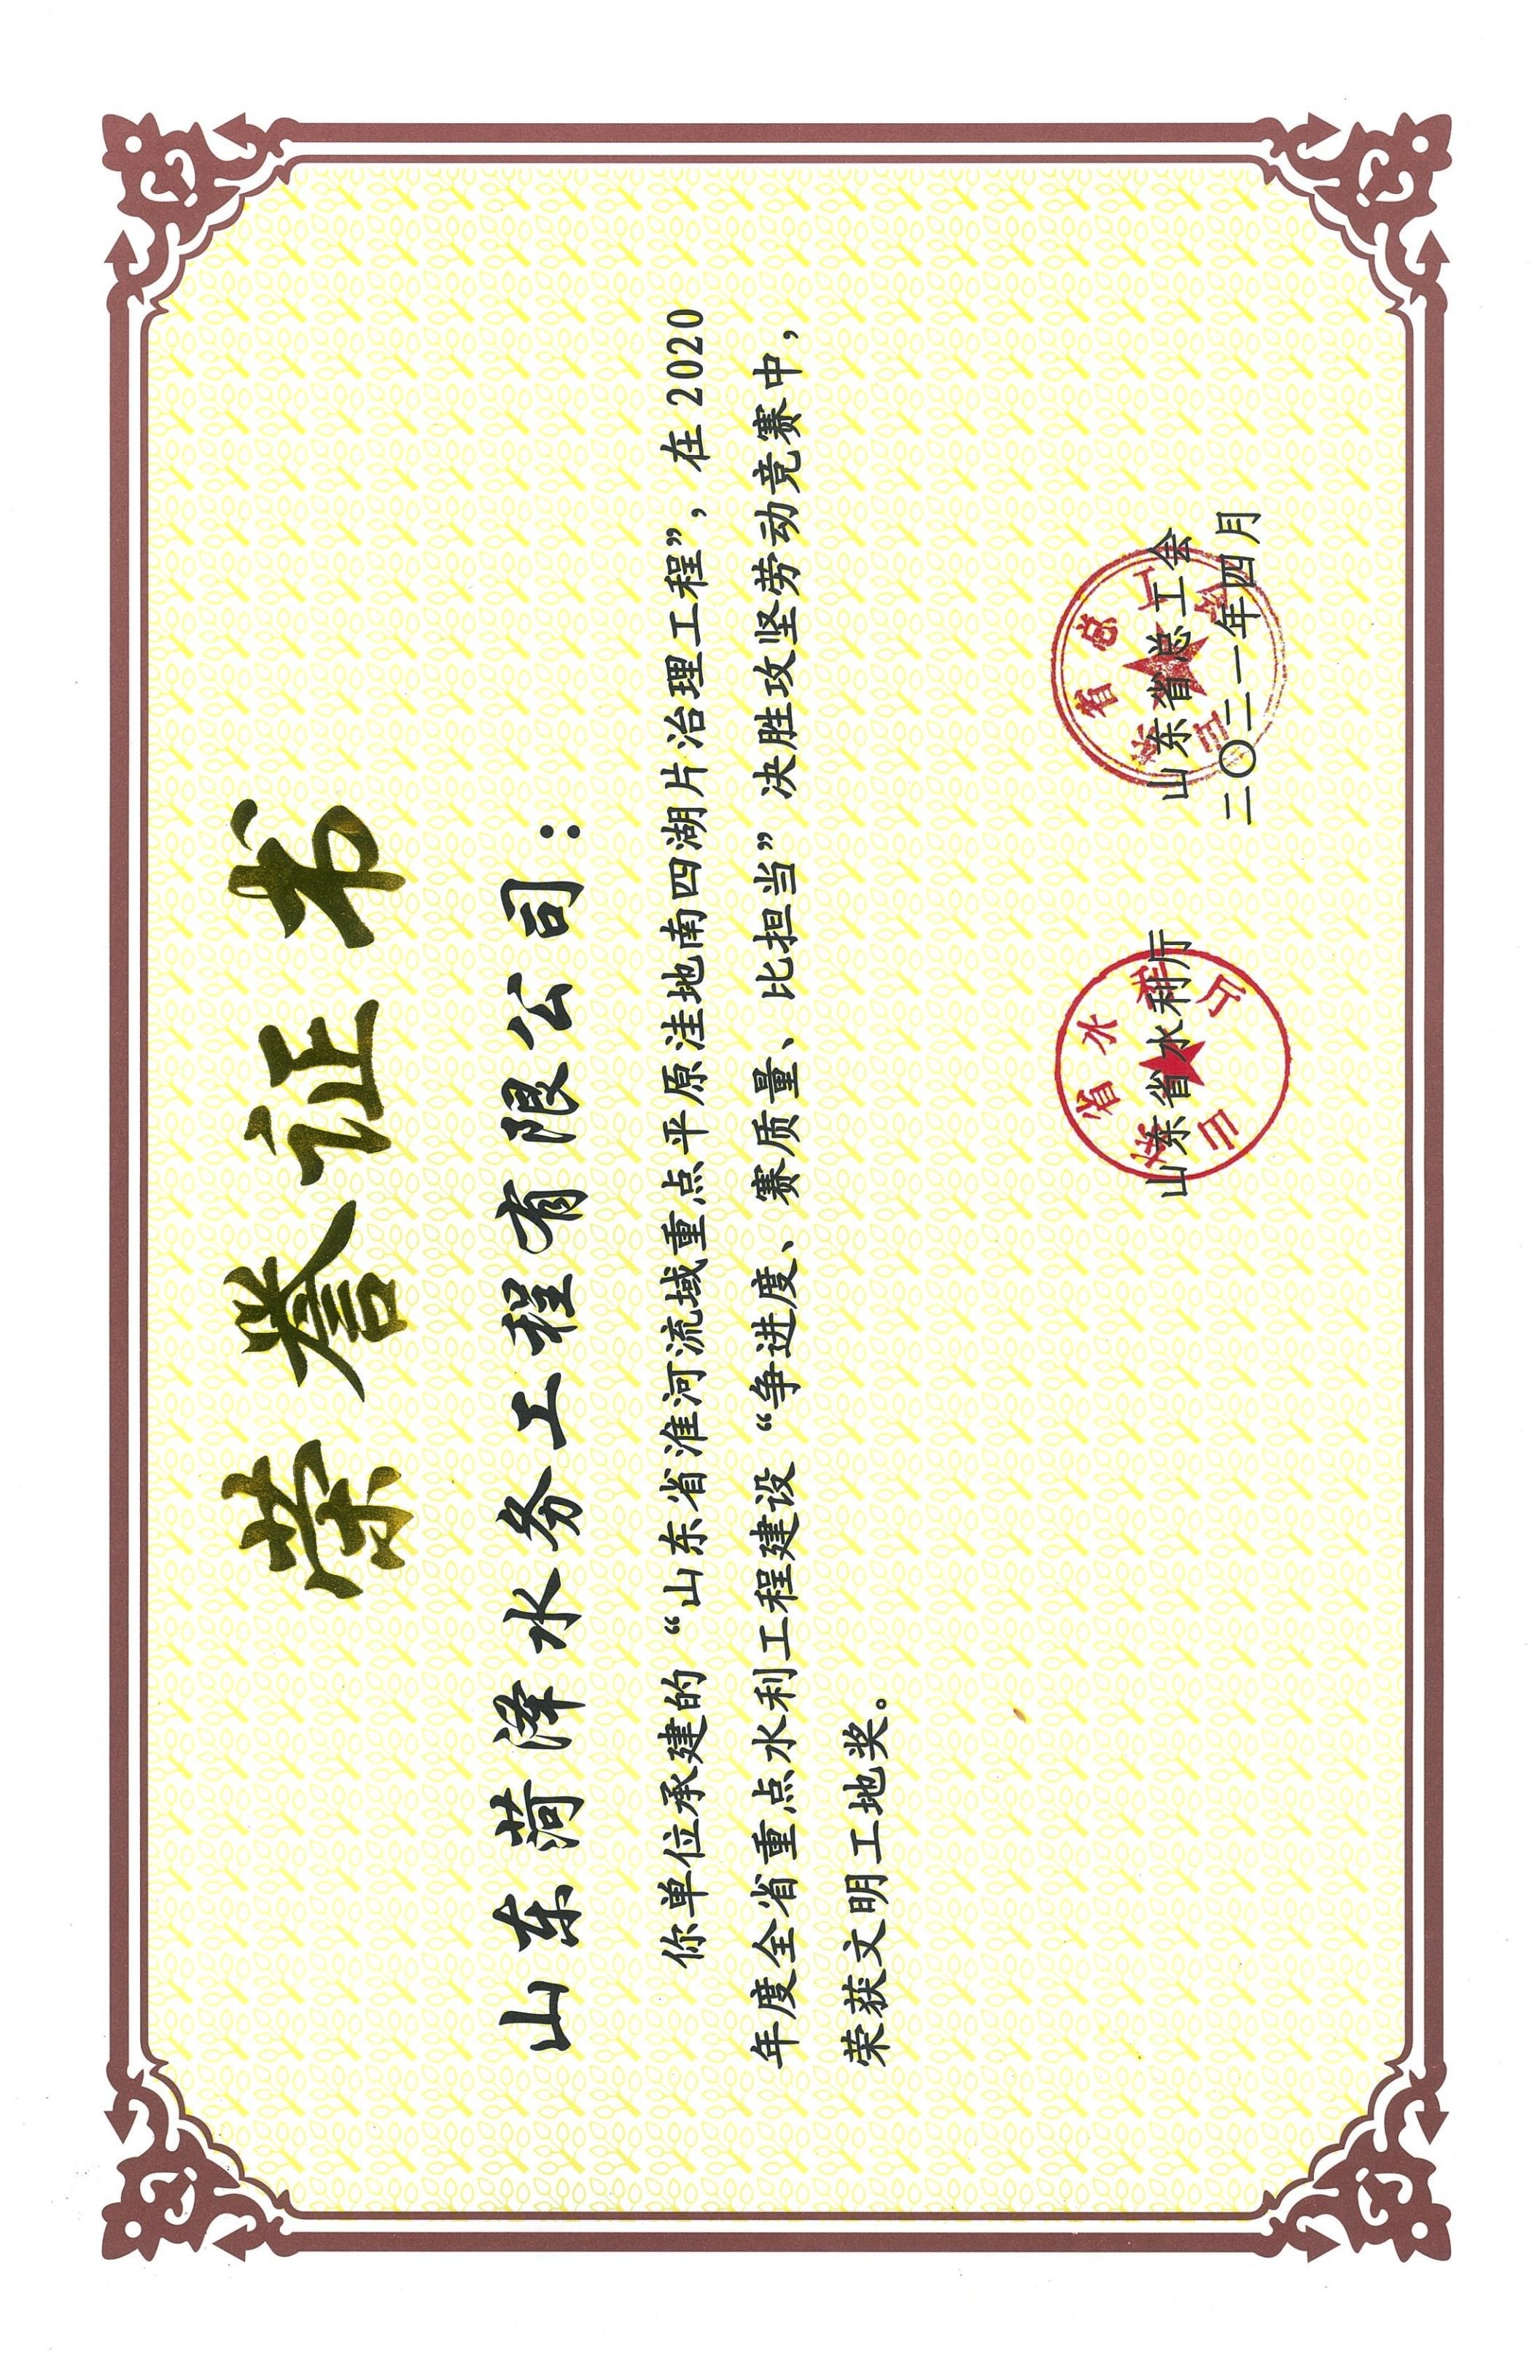 荣誉证书
山东菏泽水务工程有限公司：
你单位承建的“山东省淮河流域重点平原洼地南四湖片治理工程”，在2020
年度全省重点水利工程建设“争进度、赛质量、比担当”决胜攻坚劳动竞赛中，
荣获文明工地奖。
山东省水利厅 山东省总工会
二〇二一年四月
山东省水利厅
山东省总工会